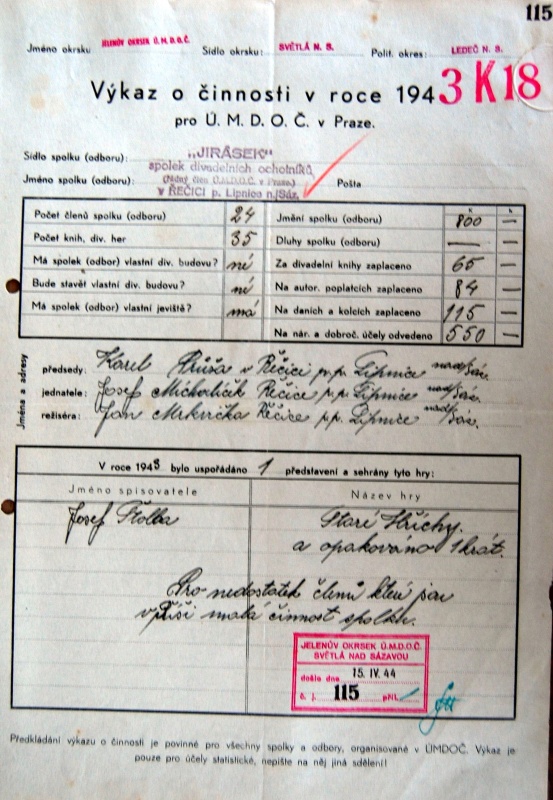 115
Jméno okrsku JELENŮV OKRSEK Ú.M.D.O.Č. Sídlo okrsku: SVĚTLÁ N. S. Polit. okres: LEDEČ N. S.
Výkaz o činnosti v roce 1943 K18
pro Ú. M. D. O. Č. v Praze.
Sídlo spolku (odboru): „JIRÁSEK"
spolek divadelních ochotníků
Jméno spolku (odboru) (řádný člen Ú.M.D.O.Č. v Praze) Pošta
v ŘEČICI p. Lipnice n./Sáz.
Počet členů spolku (odboru) 24 Jmění spolku (odboru) 800 —
Počet knih, div. her 35 Dluhy spolku (odboru) — —
Má spolek (odbor) vlastní div. budovu? né Za divadelní knihy zaplaceno 65 —
Bude stavět vlastní div. budovu? né Na autor. poplatcích zaplaceno 84 —
Má spolek (odbor) vlastní jeviště? má Na daních a kolcích zaplaceno 115 —
Na nár. a dobroč. účely odvedeno 550 —
Jména a adresy
předsedy: Karel Průša v Řečici p.p. Lipnice nad/Sáz.
jednatele: Josef Michalíček Řečice p.p. Lipnice nad/Sáz.
režiséra: Jan Mrkvička Řečice p.p. Lipnice nad/Sáz.
V roce 1943 bylo uspořádáno 1 představení a sehrány tyto hry:
Jméno spisovatele Název hry
Josef Štolba Staré Hříchy.
a opakováno 1 krát.
Pro nedostatek členů kteří jsou
malá činnost spolku.
JELENŮV OKRSEK Ú.M.D.O.Č.
SVĚTLÁ NAD SÁZAVOU
došlo dne 15. IV. 44
č. j. 115 příl.
Předkládání výkazu o činnosti je povinné pro všechny spolky a odbory, organisované v ÚMDOČ. Výkaz je
pouze pro účely statistické, nepište na něj jiná sdělení!